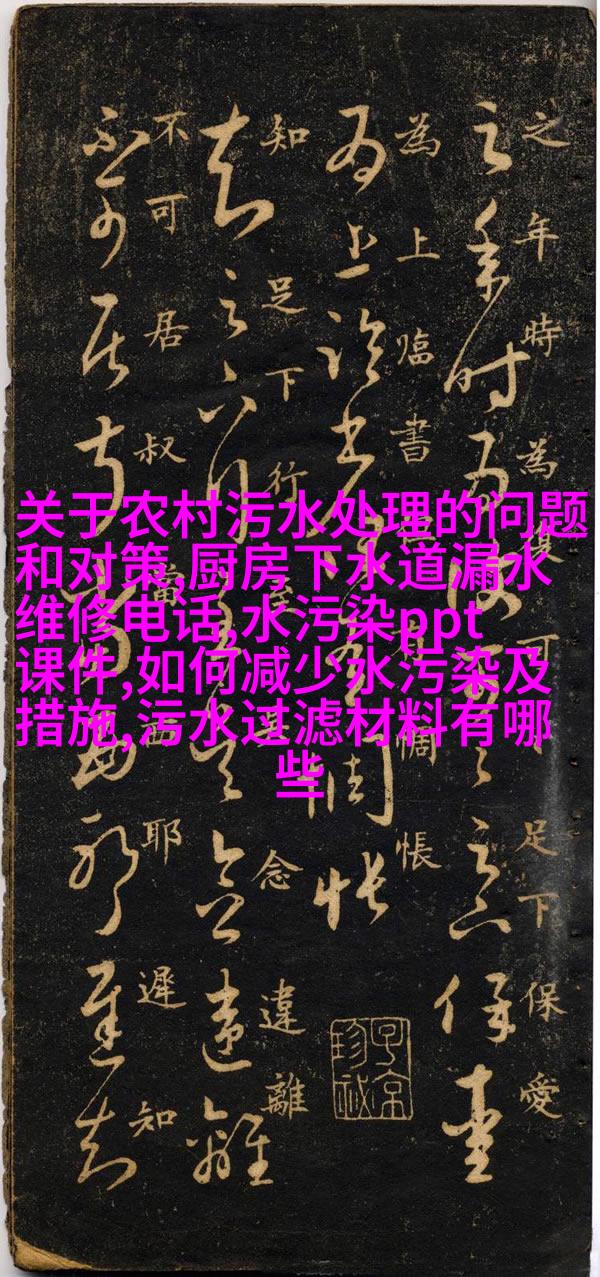 关于农村污水处理的问题
和对策,厨房下水道漏水
维修电话,水污染ppt
课件,如何减少水污染及
措施,污水过滤材料有哪
些
之年時為復可足下保愛
為上臨書但有惆悵
知足下行至吳念違離
不可居叔當西耶遲知